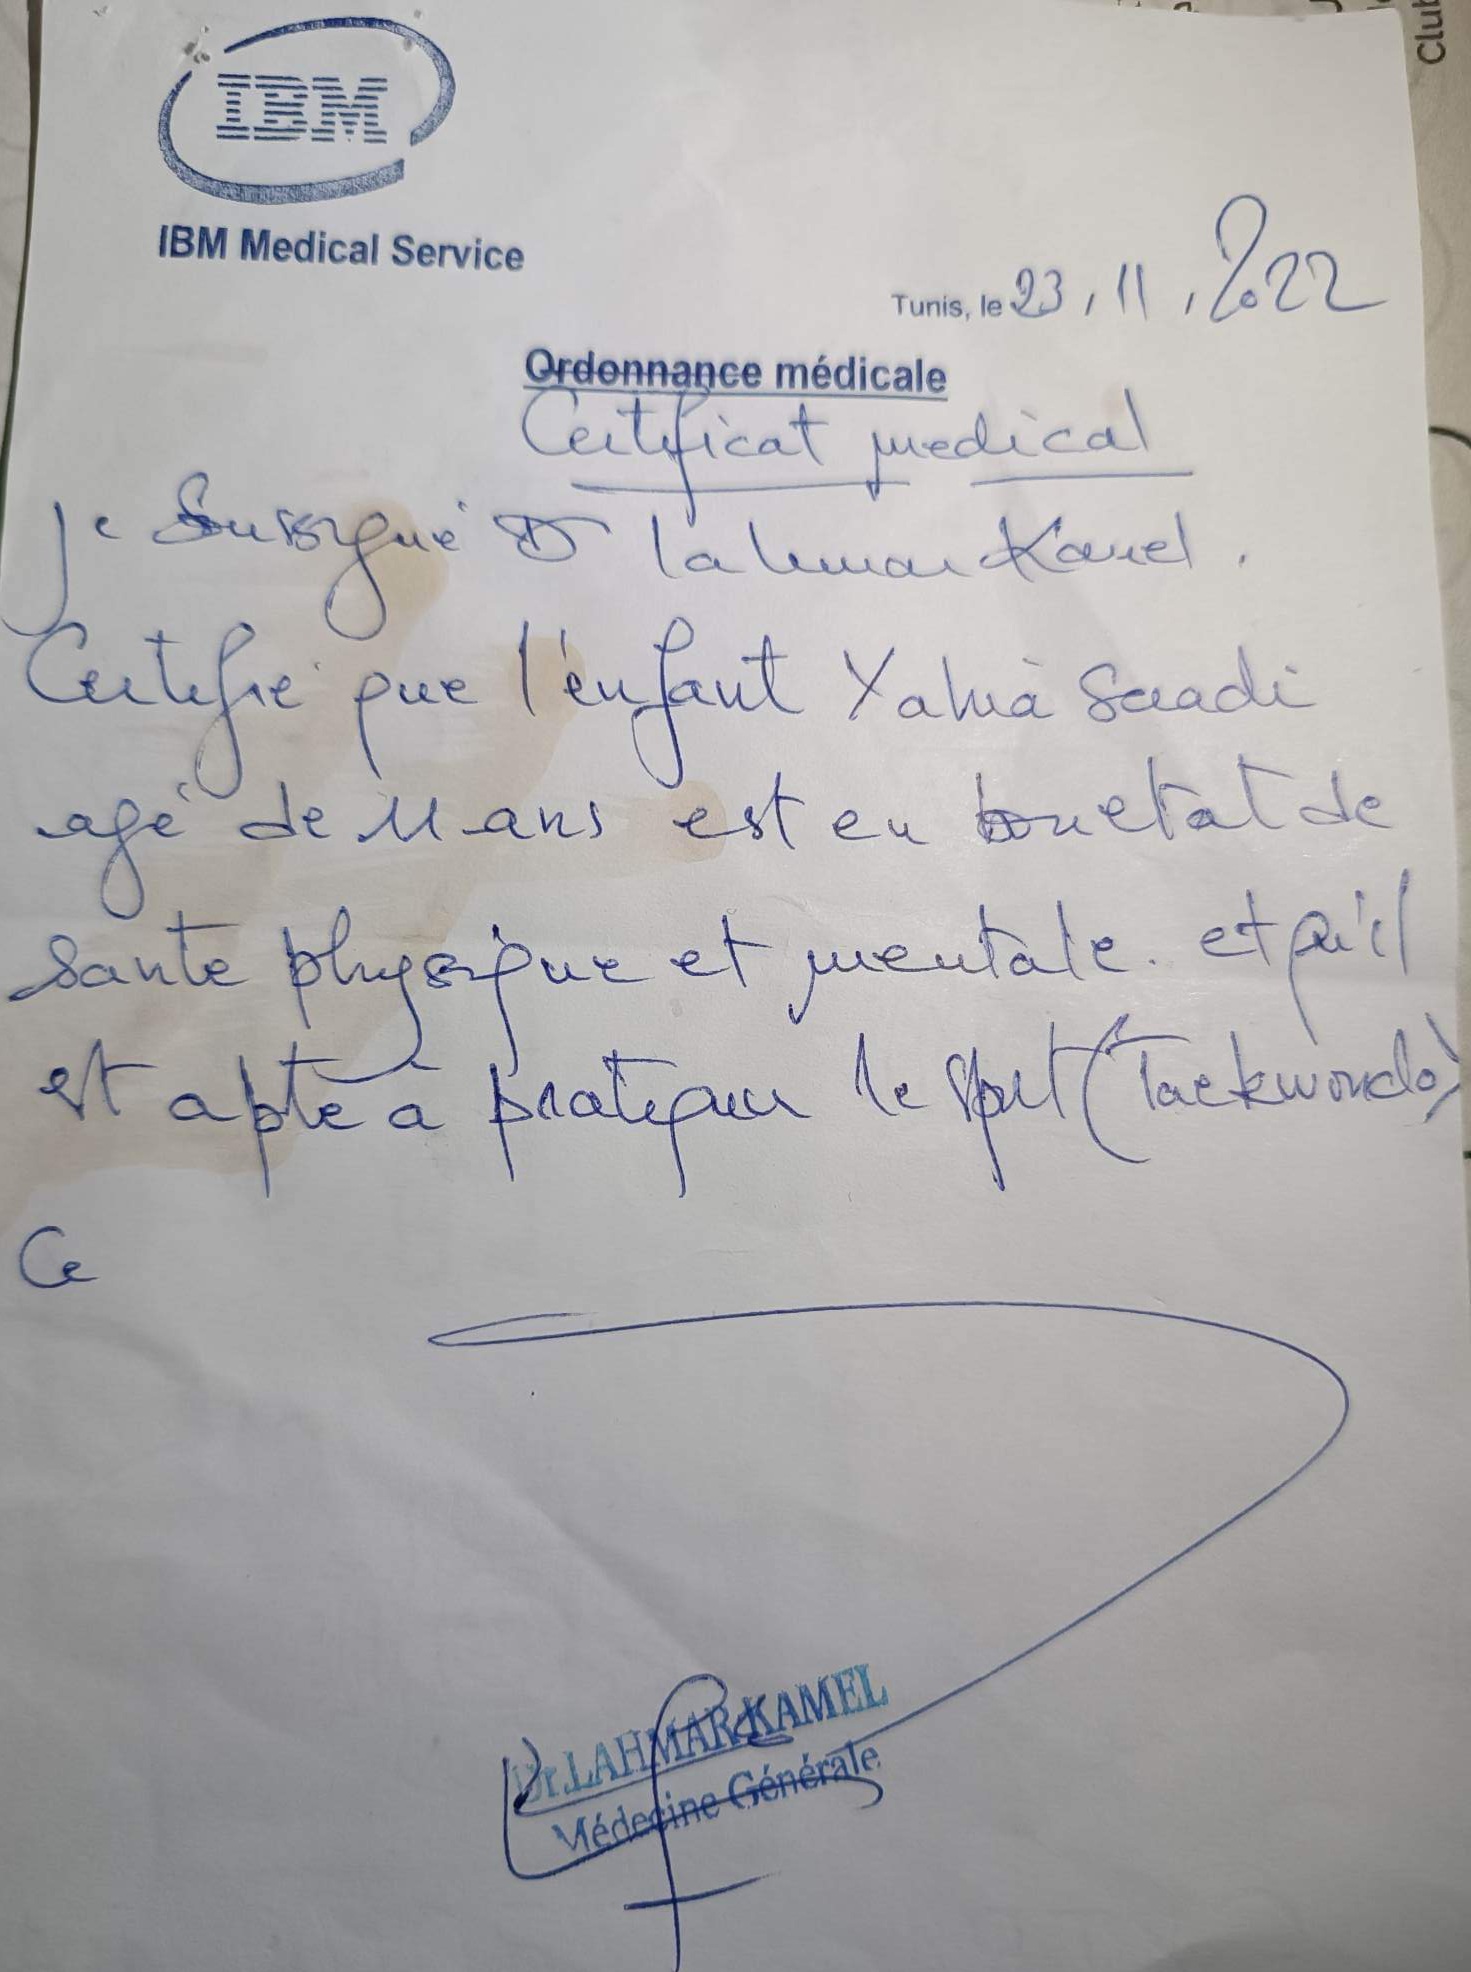 Club
IBM
IBM Medical Service
Tunis, le 23, 11, 2022
Ordonnance médicale
Certificat medical
Je Soussigné Dr Lahmar Kamel.
Certifie que l'enfant Yahia Saadi
agé de 11 ans est en bon etat de
Santé physique et mentale. et qu'il
est apte à pratiquer le sport (Taekwondo)
Ce
Dr.LAHMAR KAMEL
Médecine Générale